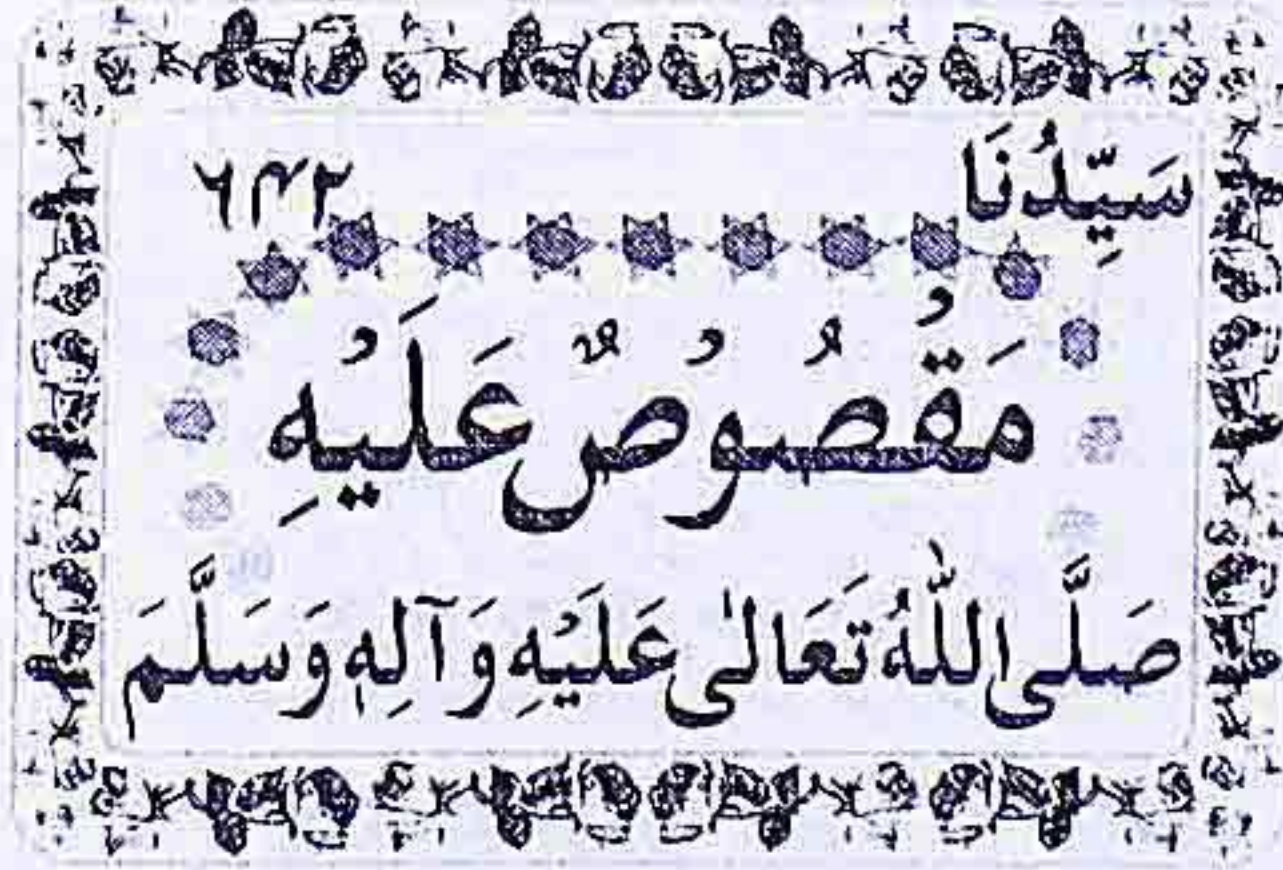 سَيِّدُنَا ۶۴۲
مَقْصُوْصٌ عَلَيْهِ
صَلَّى اللّٰهُ تَعَالٰى عَلَيْهِ وَآلِهٖ وَسَلَّمَ